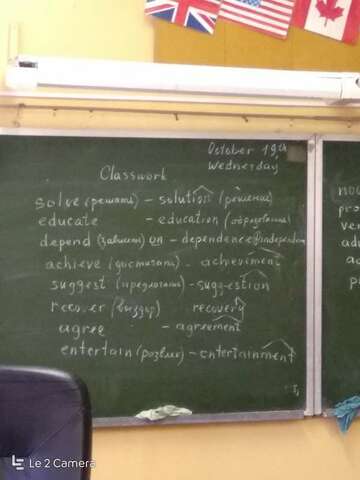 October 19th
Wednesday
Classwork
solve (решать) – solution (решение)
educate – education (образование)
depend on – dependence
achieve (достигать) – achieviment
suggest – suggestion
recover (выздор) recovery
agree – agreement
entertain (развлек) – entertainment
nou
ver
Le 2 Camera